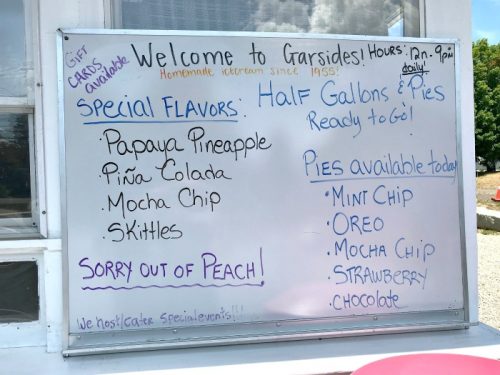 GIFT
CARDS
available
Welcome to Garsides!
HOURS: 12n - 9pm
daily!
Homemade icecream since 1955!
SPECIAL FLAVORS:
· Papaya Pineapple
· Piña Colada
· Mocha Chip
· Skittles
SORRY OUT OF PEACH!
We host/cater special events!!!
Half Gallons & Pies
Ready to Go!
Pies available today
· MINT CHIP
· OREO
· MOCHA CHIP
· STRAWBERRY
· CHOCOLATE